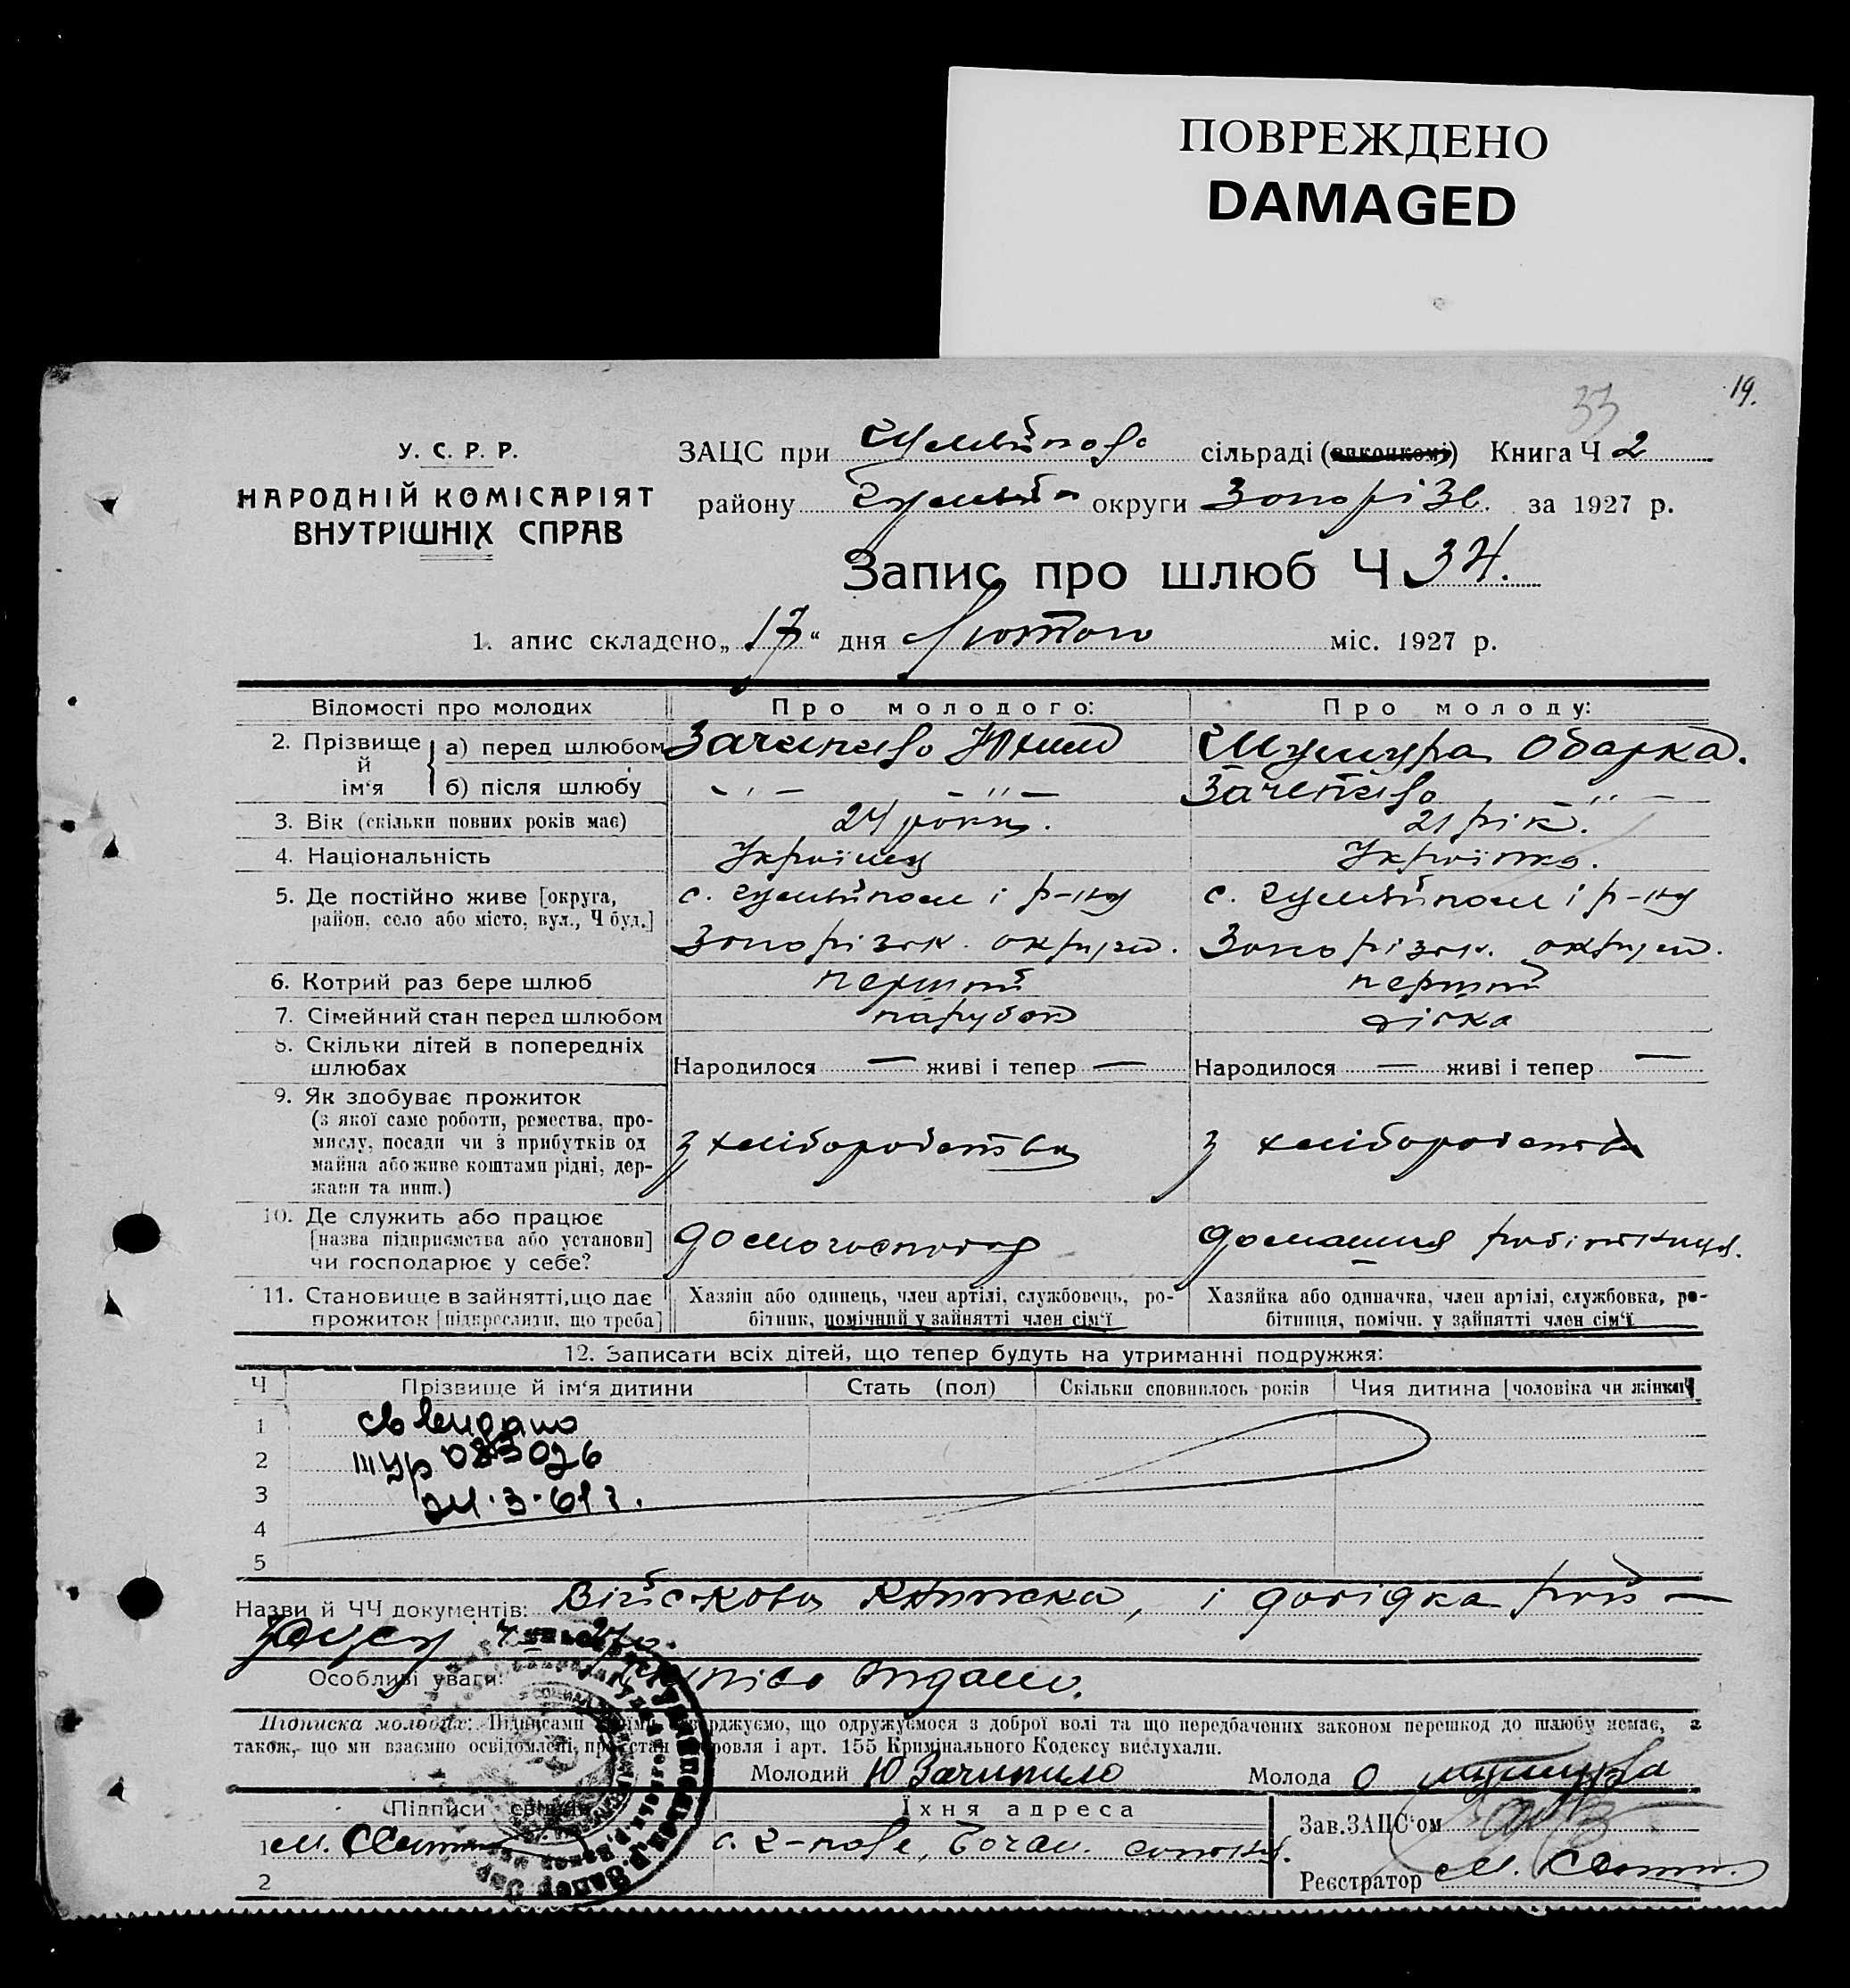 ПОВРЕЖДЕНО
DAMAGED
33 19.
У. С. Р. Р.
НАРОДНІЙ КОМІСАРІЯТ
ВНУТРІШНІХ СПРАВ
ЗАЦС при сільраді (виконкомі) Книга Ч 2
району округи Запоріз. за 1927 р.
Запис про шлюб Ч 34.
1. апис складено „17“ дня Лютого міс. 1927 р.
Відомості про молодих Про молодого: Про молоду:
2. Прізвище й ім‘я
а) перед шлюбом Зачепило Юхим Шушура Одарка.
б) після шлюбу — " — — " — Зачепило — " —
3. Вік (скільки повних років має) 24 роки. 21 рік.
4. Національність Українец Українка.
5. Де постійно живе [округа, с. Гуляйполе і р-ну с. Гуляйполе і р-ну
район, село або місто, вул., Ч буд.] Запорізьк. округи. Запорізьк. округи.
6. Котрий раз бере шлюб перший перший
7. Сімейний стан перед шлюбом парубок дівка
8. Скільки дітей в попередніх
шлюбах Народилося — живі і тепер — Народилося — живі і тепер —
9. Як здобуває прожиток
(з якої саме роботи, ремества, про-
мислу, посади чи з прибутків од з хліборобства з хліборобства
майна або живе коштами рідні, дер-
жави та инш.)
10. Де служить або працює
[назва підприємства або установи] домогосподар домашня робітниця.
чи господарює у себе?
11. Становище в зайнятті, що дає Хазяїн або одинець, член артілі, службовець, ро- Хазяйка або одиначка, член артілі, службовка, ро-
прожиток [підкреслити, що треба] бітник, помічний у зайнятті член сім‘ї бітниця, помічн. у зайнятті член сім‘ї
12. Записати всіх дітей, що тепер будуть на утриманні подружжя:
Ч Прізвище й ім‘я дитини Стать (пол) Скільки сповнилось років Чия дитина [чоловіка чи жінки]
1
2 083026
3 24.3.61 г.
4
5
Назви й ЧЧ документів: Військова книжка, і довідка рай—
ЗАЦСу
Особливі уваги:
Підписка молодих: Підписами своїми стверджуємо, що одружуємося з доброї волі та що передбачених законом перешкод до шлюбу немає, а
також, що ми взаємно освідомлені про стан здоровля і арт. 155 Кримінального Кодексу вислухали.
Молодий Ю Зачипило Молода О Шушура
Підписи свідків Їхня адреса Зав. ЗАЦС‘ом
1 с. Г-поле,
2 Реєстратор